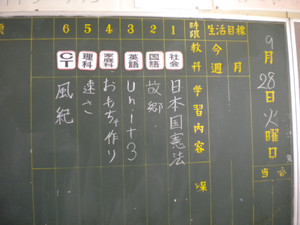 9月28日火曜日
日会
生活目標
月
今週
時限
教科
学習内容
1
社会
日本国憲法
2
国語
故郷
3
英語
Unit3
4
家庭科
おもちゃ作り
5
理科
速さ
6
CT
風紀